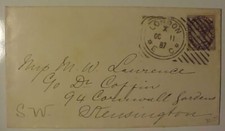 LONDON
X
DE 11
87
Miss M W Lawrence
C/o Dr Coffin
94 Cornwall Gardens
S.W. Kensington